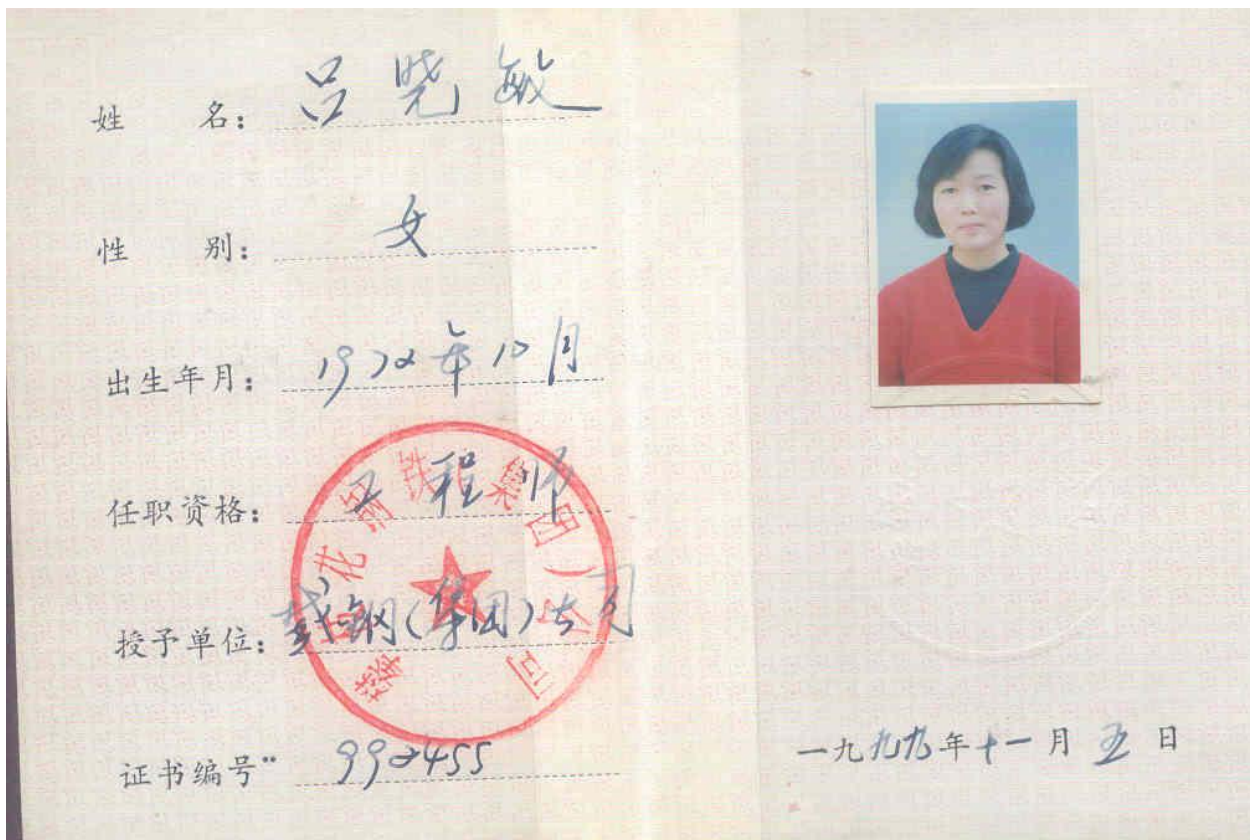 姓名：吕晓敏
性别：女
出生年月：1972年10月
任职资格：工程师
授予单位：攀钢(集团)公司
证书编号" 992455
攀枝花钢铁(集团)公司
一九九九年十一月五日